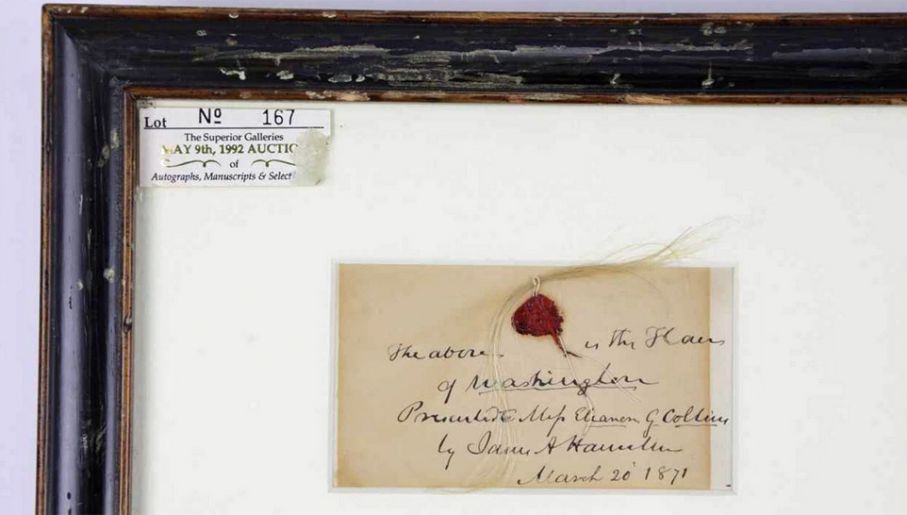 Lot Nº 167
The Superior Galleries
MAY 9th, 1992 AUCTIO
of
Autographs, Manuscripts & Select
The above is the Hair
of Washington
Presented to Miss Eleanor G Collins
by James A Hamilton
March 20 1871